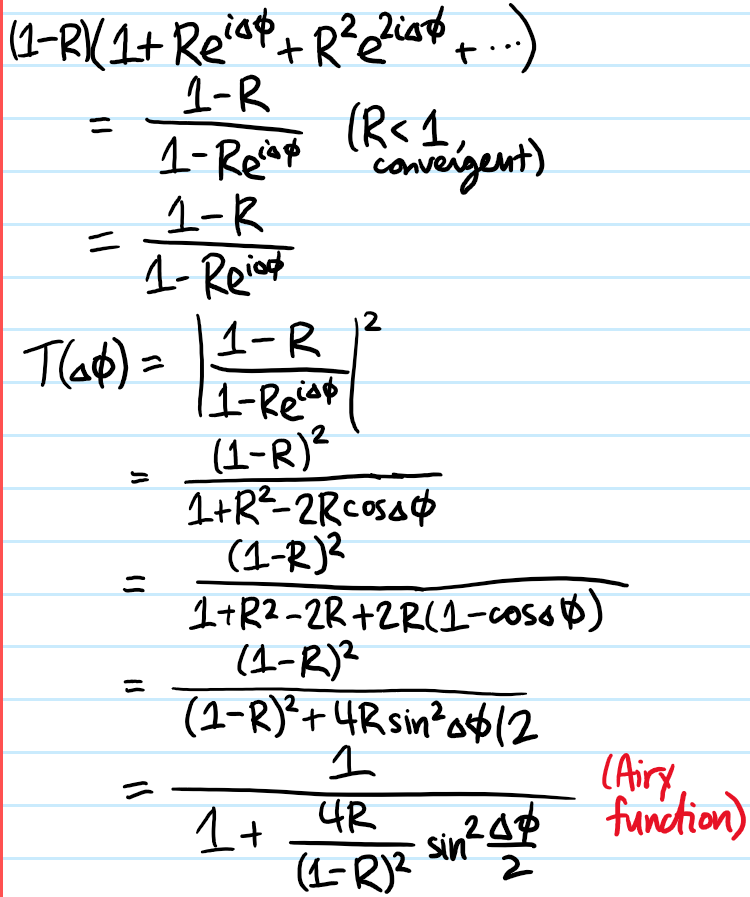 (1-R)(1+Re^{iΔϕ}+R²e^{2iΔϕ}+⋯)
= \frac{1-R}{1-Re^{iΔϕ}} (R<1, convergent)
= \frac{1-R}{1-Re^{iΔϕ}}
T(Δϕ) = |\frac{1-R}{1-Re^{iΔϕ}}|²
= \frac{(1-R)²}{1+R²-2RcosΔϕ}
= \frac{(1-R)²}{1+R²-2R+2R(1-cosΔϕ)}
= \frac{(1-R)²}{(1-R)²+4Rsin²Δϕ/2}
= \frac{1}{1+\frac{4R}{(1-R)²}sin²\frac{Δϕ}{2}} (Airy function)